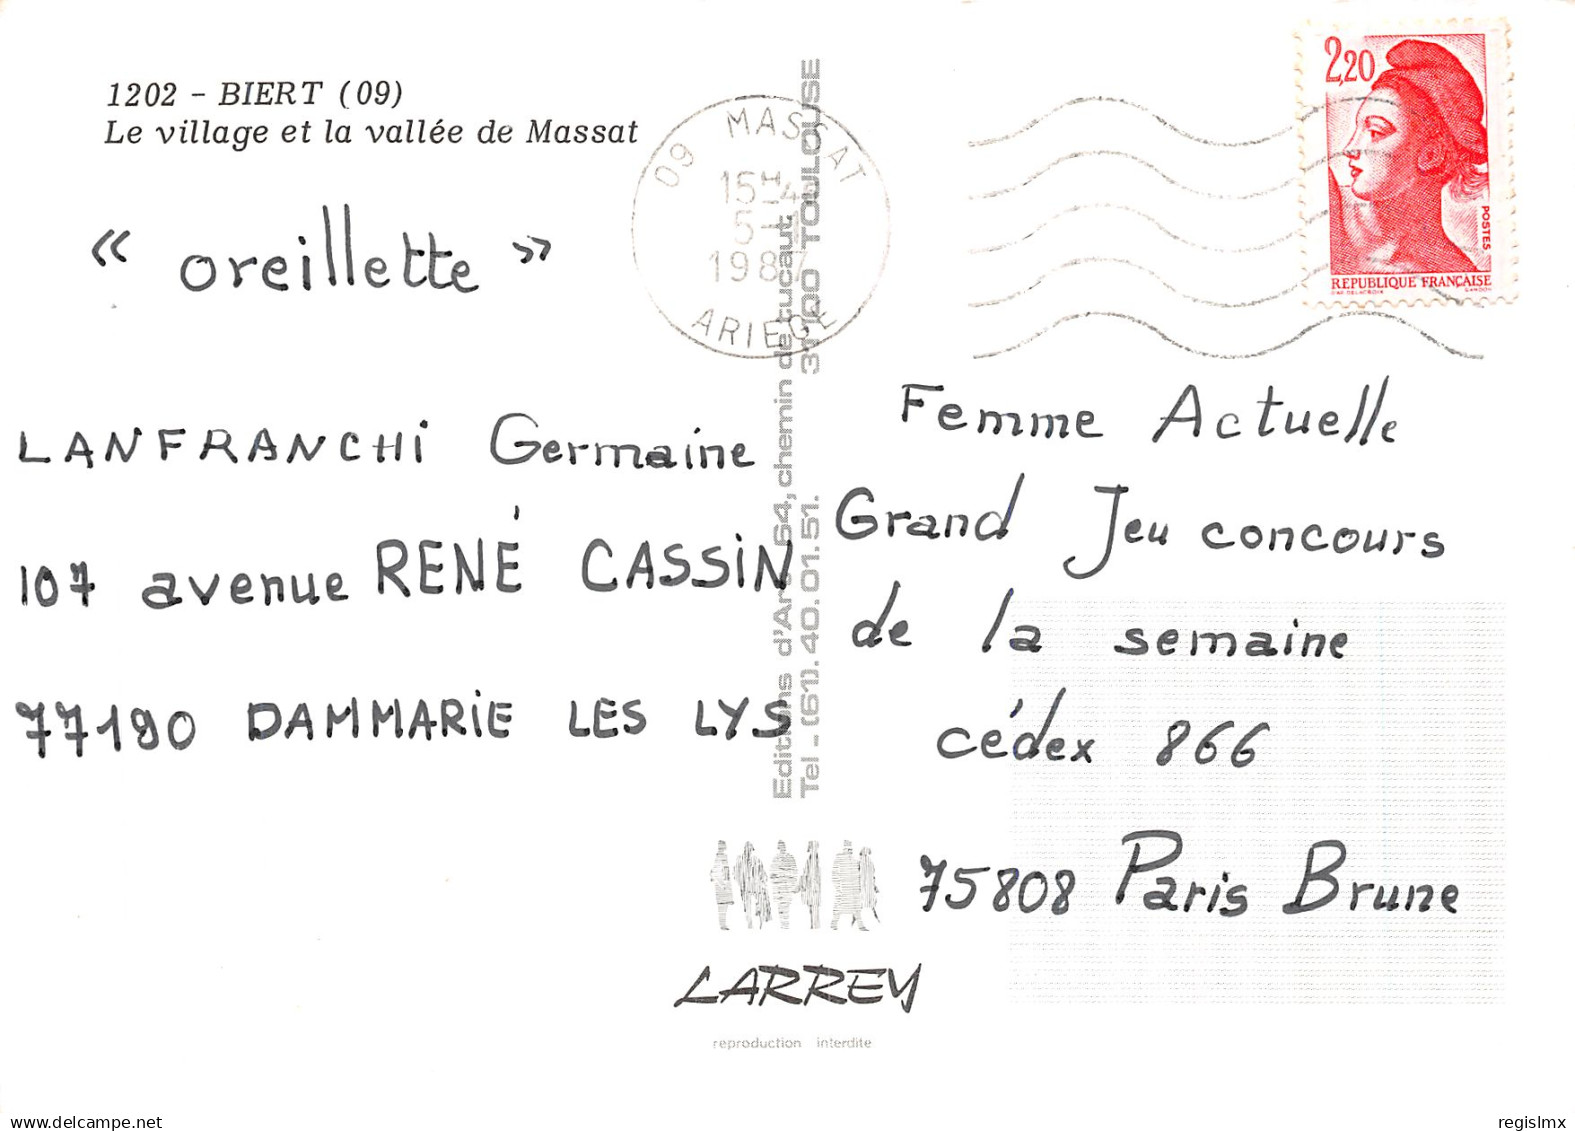 1202 - BIERT (09)
Le village et la vallée de Massat
« oreillette »
LANFRANCHi Germaine
107 avenue RENÉ CASSiN
77190 DAMMARiE LES LYS
09 MASSAT
15H4
1987
ARIEGE
Editions d'Art 64, chemin de tucaut
Tel - (61). 40.01.51. 31100 TOULOUSE
2,20
POSTES
REPUBLIQUE FRANÇAISE
D'AP. DELACROIX GANDON
Femme Actuelle
Grand Jeu concours
de la semaine
cédex 866
75808 Paris Brune
LARREY
reproduction interdite
delcampe.net
regislmx